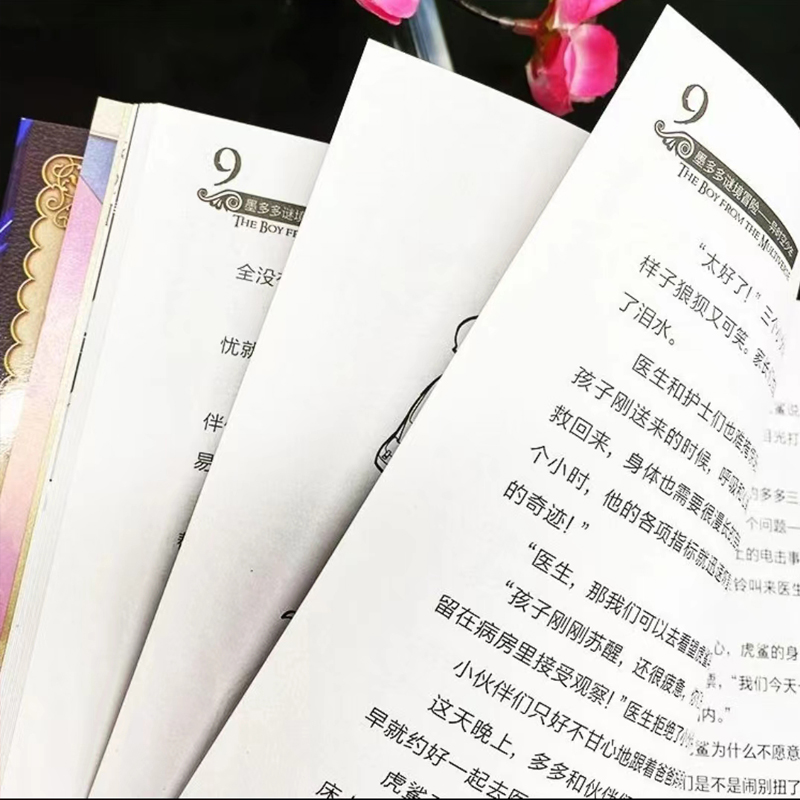 9
墨多多谜境
THE BOY FR
全没
忧就
伴
易
9
墨多多谜境冒险——异时空少年
THE BOY FROM THE MULTIVERSE
“太好了!”三个
样子狼狈又可笑。家长
了泪水。
医生和护士们也难掩
孩子刚送来的时候,呼吸和
救回来,身体也需要很漫长的
个小时,他的各项指标就迅速
的奇迹!”
“医生,那我们可以去看望虎鲨
“孩子刚刚苏醒,还很疲惫,
留在病房里接受观察!”医生拒绝了小
小伙伴们只好不甘心地跟着爸爸
这天晚上,多多和伙伴们
早就约好一起去医
虎鲨
床
鲨说
目光打
为多多三
个问题—
上的电击事
铃叫来医生
心,虎鲨的身
“我们今天
内。”
鲨为什么不愿意
们是不是闹别扭了